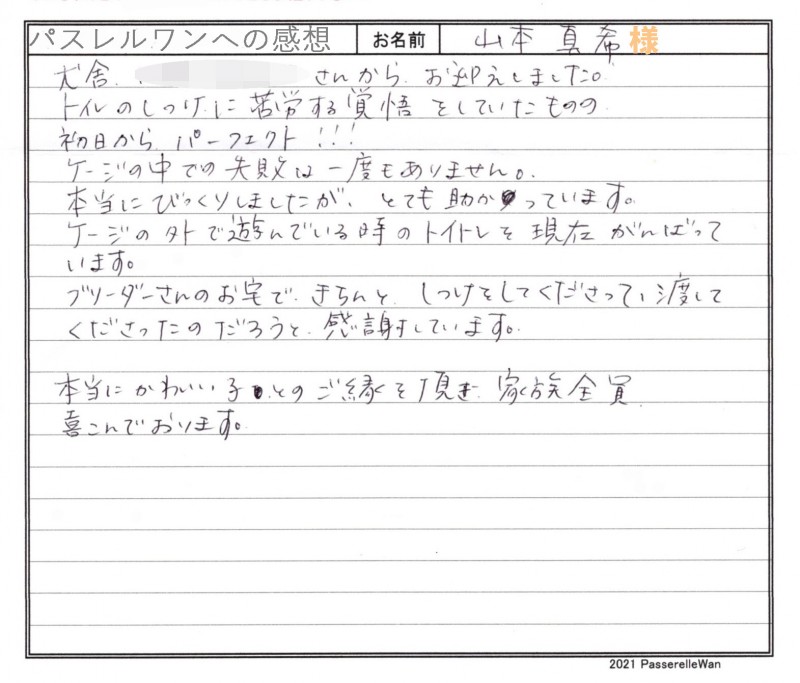 パスレルワンへの感想 お名前 山本 真希様
犬舎 さんから お迎えしました。
トイレのしつけに 苦労する覚悟 をしていたものの
初日から パーフェクト!!!
ケージの中での失敗は一度もありません。
本当にびっくりしましたが、とても助かっています。
ケージの外で遊んでいる時のトイトレを現在 がんばって
います。
ブリーダーさんのお宅で きちんと しつけをしてくださって、渡して
くださったのだろうと 感謝しています。
本当にかわいい子とのご縁を頂き 家族全員
喜こんでおります。
2021 PasserelleWan